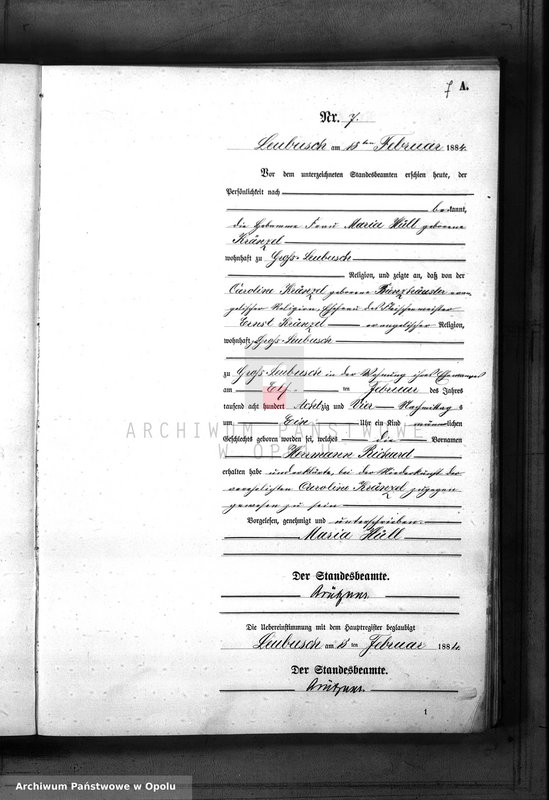 7 A.
Nr. 7.
Leubusch am 15 ten Februar 1884.
Vor dem unterzeichneten Standesbeamten erschien heute, der
Persönlichkeit nach
bekannt,
die Hebamme Frau Maria Hüll geborene
Kränzel
wohnhaft zu Groß-Leubusch
Religion, und zeigte an, daß von der
Caroline Kränzel geborene evan-
gelischer Religion, Ehefrau des
Ernst Kränzel evangelischer Religion,
wohnhaft Groß-Leubusch
zu Groß-Leubusch in der Wohnung ihres Ehemannes
am Elf ten Februar des Jahres
tausend acht hundert Achtzig und Vier Nachmittags
um Ein Uhr ein Kind männlichen
Geschlechts geboren worden sei, welches die Vornamen
Herrmann Richard
erhalten habe und erklärte, bei der Niederkunft der
verehelichten Caroline Kränzel zugegen
gewesen zu sein
Vorgelesen, genehmigt und unterschrieben.
Maria Hüll
Der Standesbeamte.
Die Uebereinstimmung mit dem Hauptregister beglaubigt
Leubusch am 15 ten Februar 1884.
Der Standesbeamte.
1
ARCHIWUM PAŃSTWOWE
W OPOLU
Archiwum Państwowe w Opolu